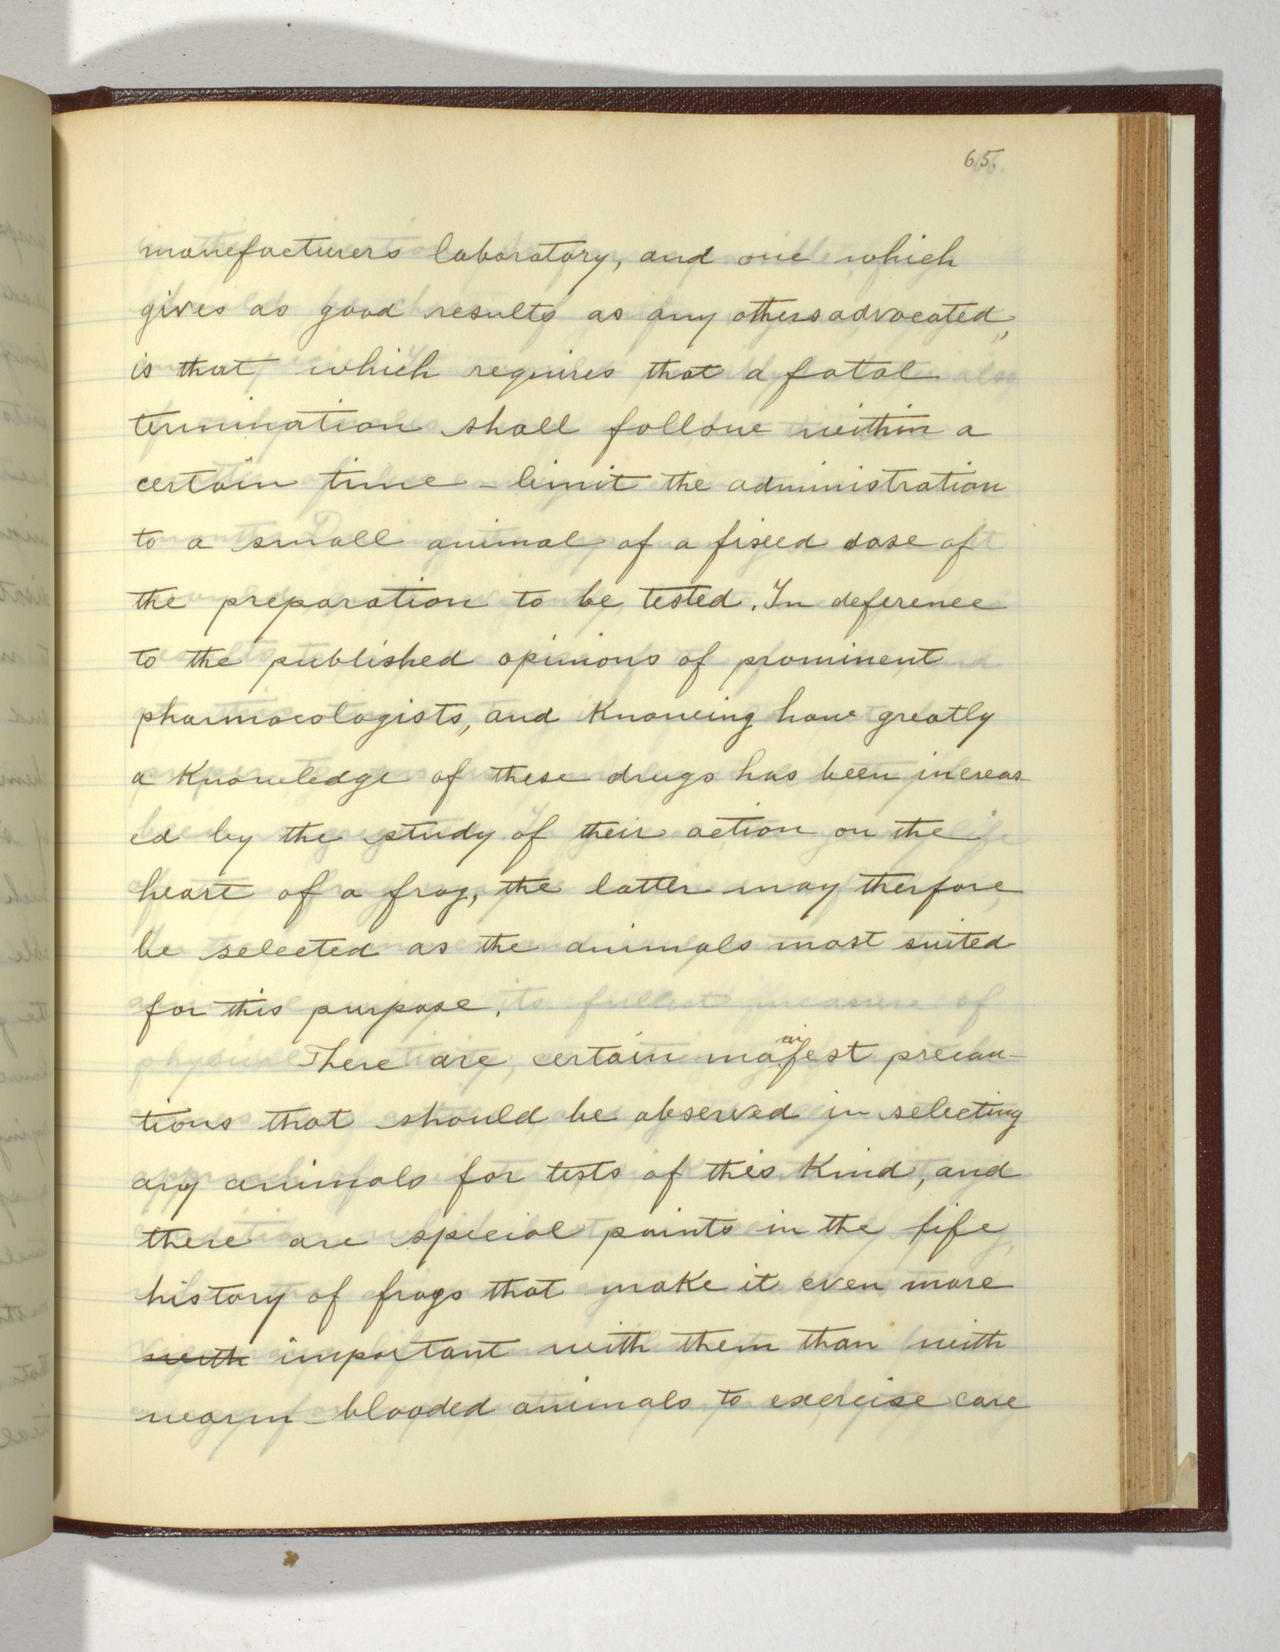 65.
manufacturers laboratory, and one which
gives as good results as any others advocated,
is that, which requires that a fatal
termination shall follow within a
certain time - limit the administration
to a small animal of a fixed dose of
the preparation to be tested. In deference
to the published opinions of prominent
pharmacologists, and Knowing how greatly
a Knowledge of these drugs has been increas
ed by the study of their action on the
heart of a frog, the latter may therfore
be selected as the animals most suited
for this purpose.
There are certain manifest precau-
tions that should be observed in selecting
any animals for tests of this Kind, and
there are special points in the life
history of frogs that make it even more
with important with them than with
warm-blooded animals to exercise care